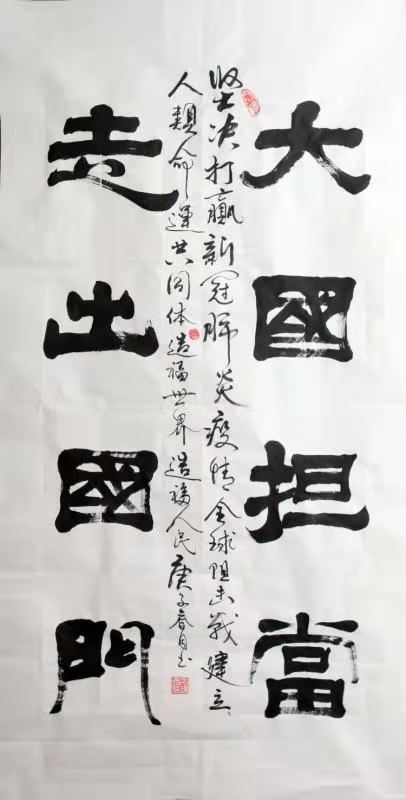 大國担當
坚决打赢新冠肺炎疫情全球阻击戰建立
人類命運共同体造福世界造福人民庚子春月书
走出國門